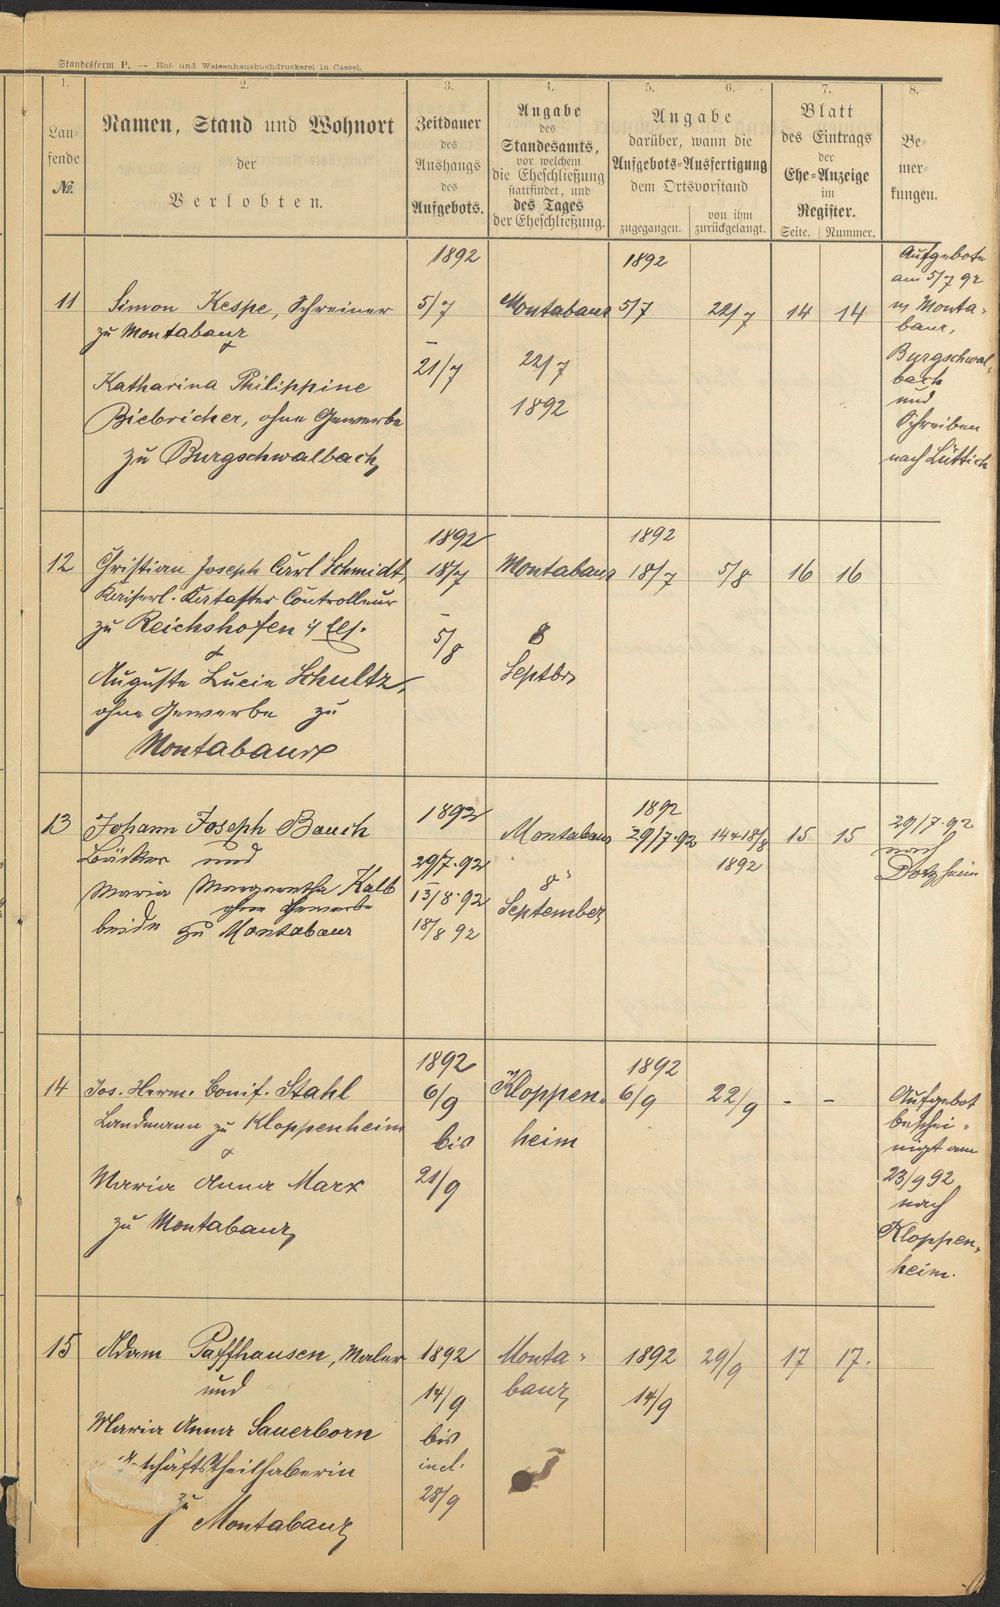 Standesform P. — Hof- und Waisenhausbuchdruckerei in Cassel.
1.
2.
3.
4.
5.
6.
7.
8.
Lau-
fende
No.
Namen, Stand und Wohnort
der
Verlobten.
Zeitdauer
des
Aushangs
des
Aufgebots.
Angabe
des
Standesamts,
vor welchem
die Eheschließung
stattfindet, und
des Tages
der Eheschließung.
Angabe
darüber, wann die
Aufgebots-Ausfertigung
dem Ortsvorstand
zugegangen.
von ihm
zurückgelangt.
Blatt
des Eintrags
der
Ehe-Anzeige
im
Register.
Seite.
Nummer.
Be-
mer-
kungen.
11
Simon Kespe, Schreiner
zu Montabaur
&
Katharina Philippine
Biebricher, ohne Gewerbe
zu Burgschwalbach
1892
5/7
–
21/7
Montabaur
22/7
1892
1892
5/7
22/7
14
14
Aufgebote
am 5/7 92
in Monta-
baur,
Burgschwal-
bach
und
Schreiben
nach Lüttich
12
Christian Joseph Carl Schmidt,
Kaiserl. Kataster Controlleur
zu Reichshofen i/ Els.
&
Auguste Lucie Schultz,
ohne Gewerbe zu
Montabaur
1892
18/7
–
5/8
Montabaur
8
Septbr
1892
18/7
5/8
16
16
13
Johann Joseph Bauch
Bäcker und
Maria Margaretha Kalb
ohne Gewerbe
beide zu Montabaur
1892
29/7.92
–
13/8.92
18/8 92
Montabaur
8
September
1892
29/7.92
14+18/8
1892
15
15
29/7.92
nach
Dotzheim
14
Jos. Herm. Bonif. Stahl
Landmann zu Kloppenheim
&
Maria Anna Marx
zu Montabaur
1892
6/9
bis
21/9
Kloppen-
heim
1892
6/9
22/9
-
-
Aufgebot
beschei-
nigt am
23/9 92
nach
Kloppen-
heim.
15
Adam Paffhausen, Maler
und
Maria Anna Sauerborn
schäftstheilhaberin
zu
Montabaur
1892
14/9
bis
incl.
28/9
Monta-
baur
1892
14/9
29/9
17
17.